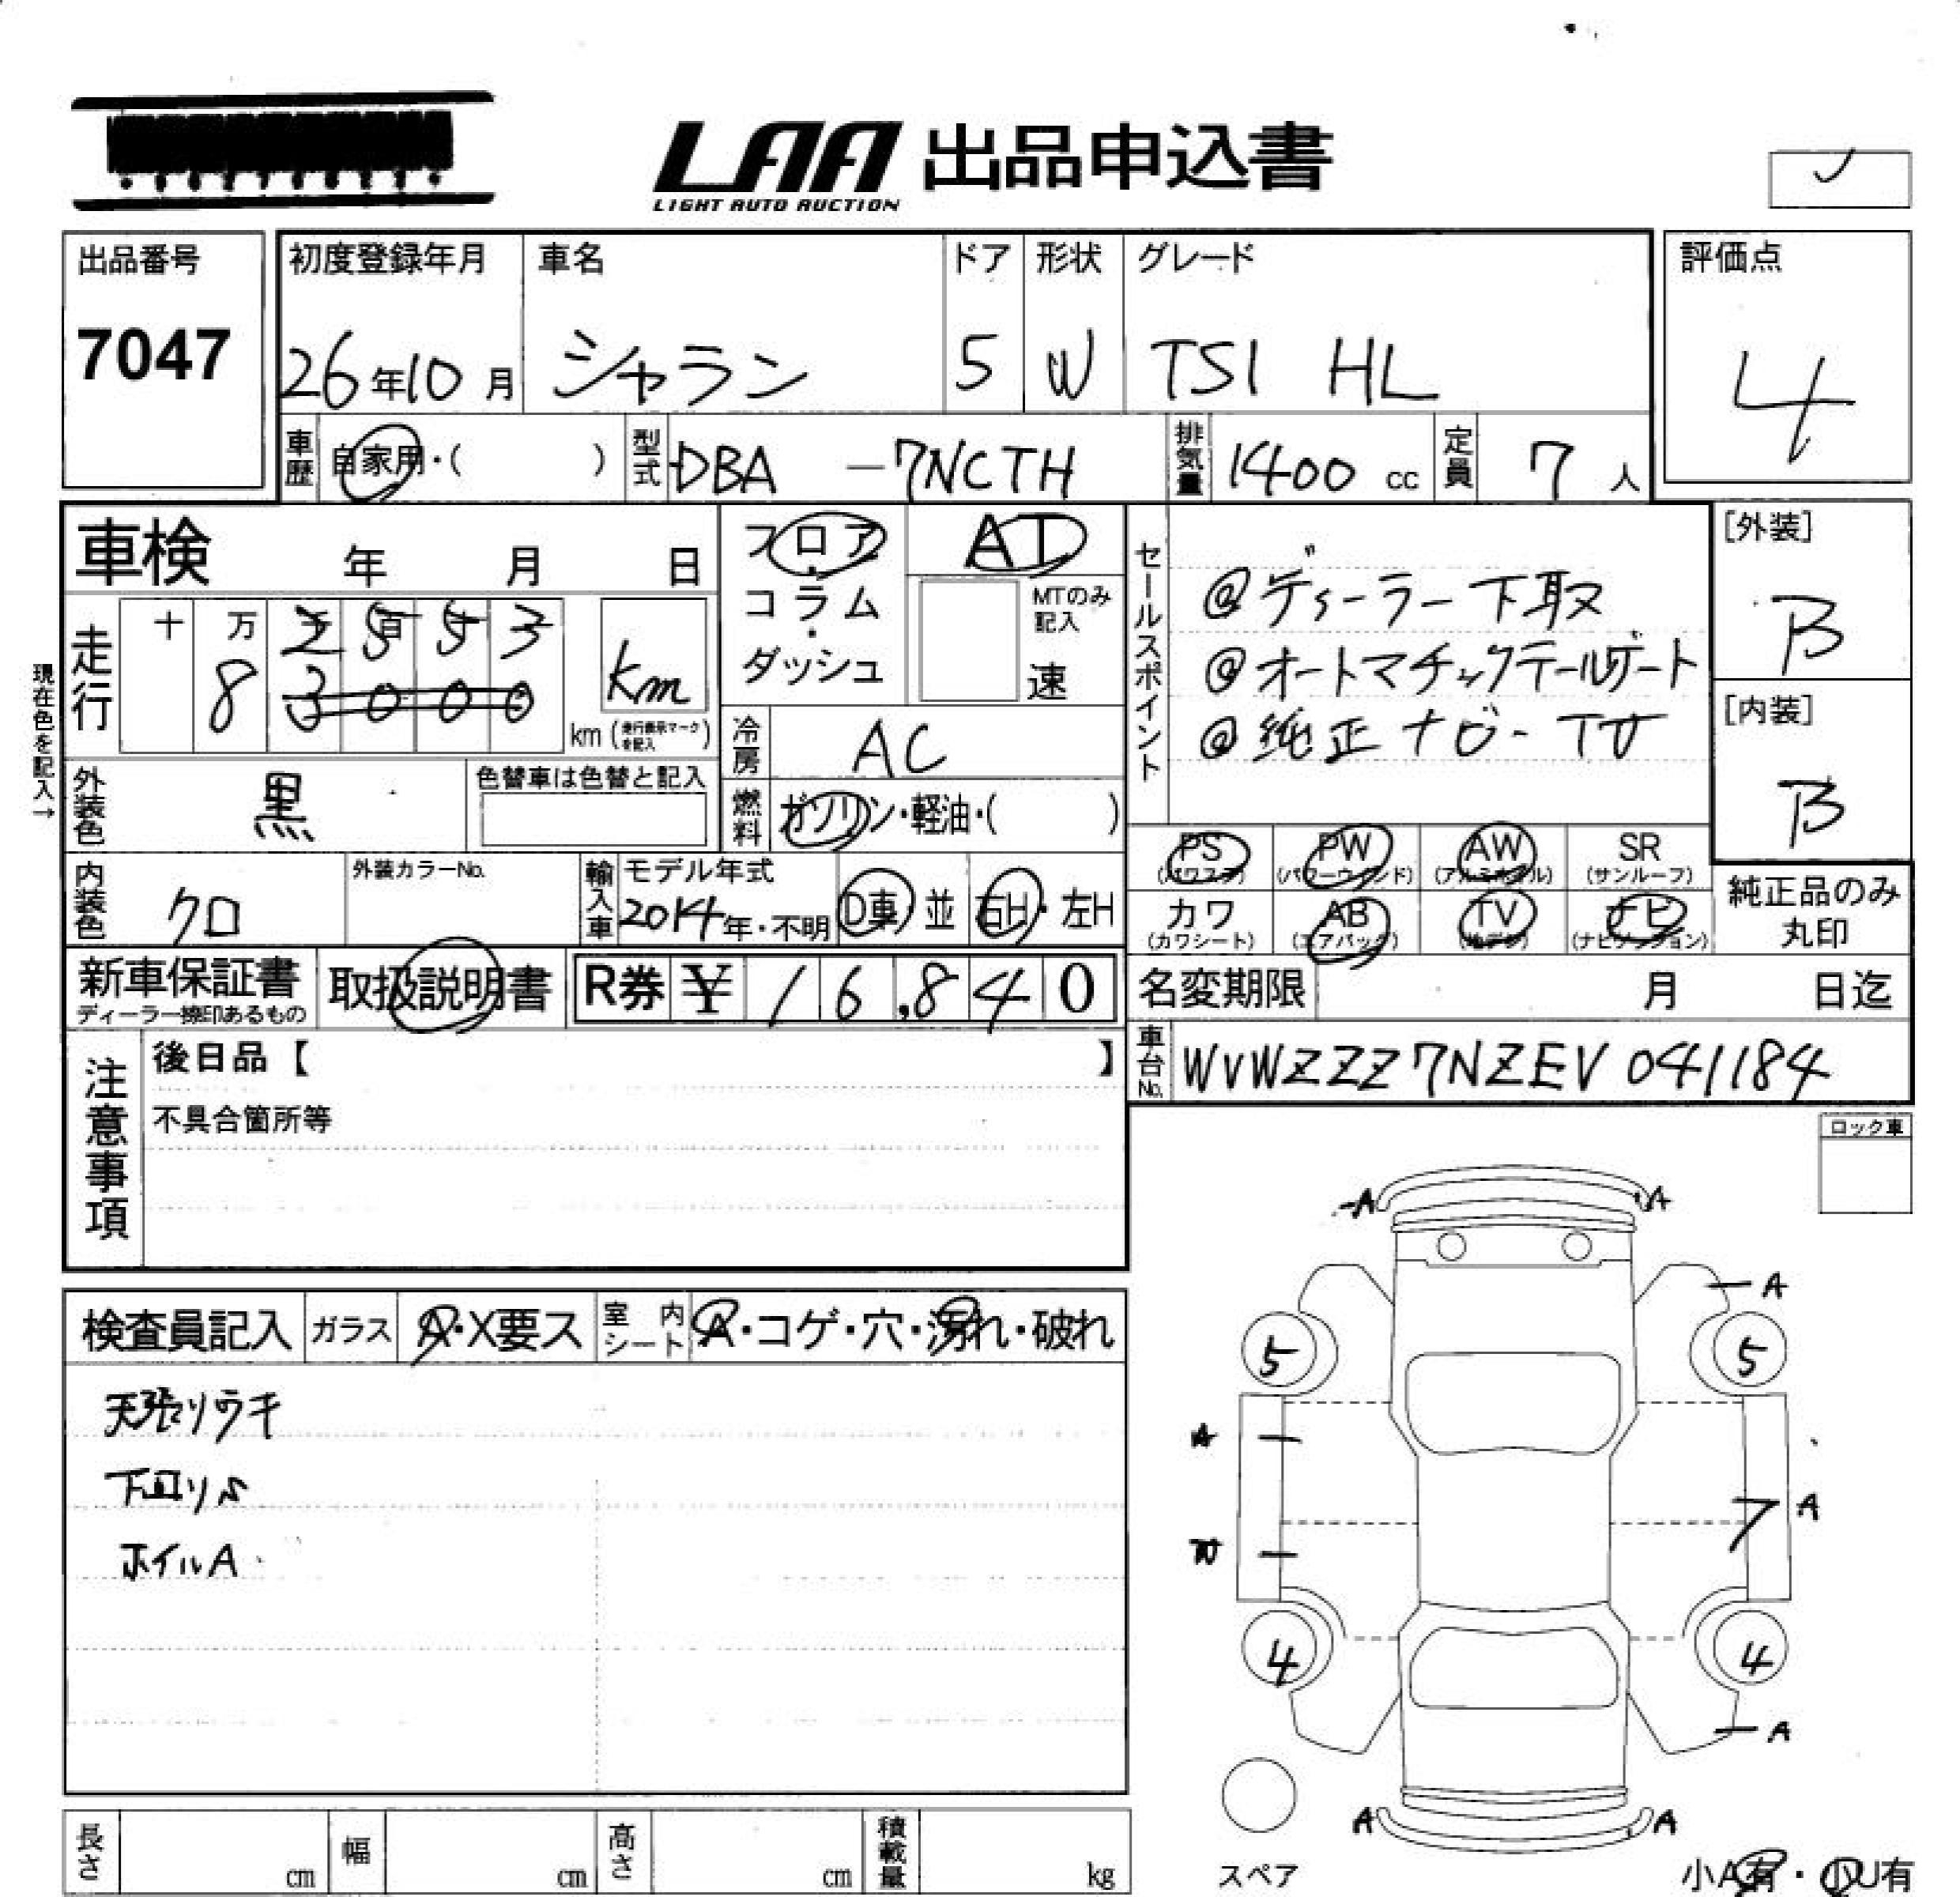 LAA 出品申込書
LIGHT AUTO AUCTION
出品番号
7047
初度登録年月
26年10月
車名
シャラン
ドア
5
形状
W
グレード
TSI HL
評価点
4
車歴 自家用・( )
型式 DBA -7NCTH
排気量 1400 cc
定員 7 人
車検 年 月 日
フロア・コラム・ダッシュ
AT
MTのみ記入
速
セールスポイント
@ディーラー下取
@オートマチックテールゲート
@純正ナビ-TV
[外装]
B
[内装]
B
現在色を記入→
走行 十 万 千 百 十
2553
8 3000
km
km (走行表示マークを記入)
冷房 AC
燃料 ガソリン・軽油・( )
外装色 黒
色替車は色替と記入
内装色 クロ
外装カラーNo.
輸入車 モデル年式
2014年・不明
D車 並 右H・左H
PS (パワステ)
PW (パワーウインド)
AW (アルミホイル)
SR (サンルーフ)
カワ (カワシート)
AB (エアバッグ)
TV (地デジ)
ナビ (ナビゲーション)
純正品のみ丸印
新車保証書
ディーラー捺印あるもの
取扱説明書
R券 ¥ 16,840
名変期限 月 日迄
車台No. WVWZZZ7NZEV041184
注意事項
後日品【 】
不具合箇所等
ロック車
検査員記入 ガラス A・X要ス 室内シート A・コゲ・穴・汚れ・破れ
天張リウキ
下回りS
ホイルA
A A
A
5 5
A
A
W
4 4
A
A A
スペア
小A有・小U有
長さ cm 幅 cm 高さ cm 積載量 kg